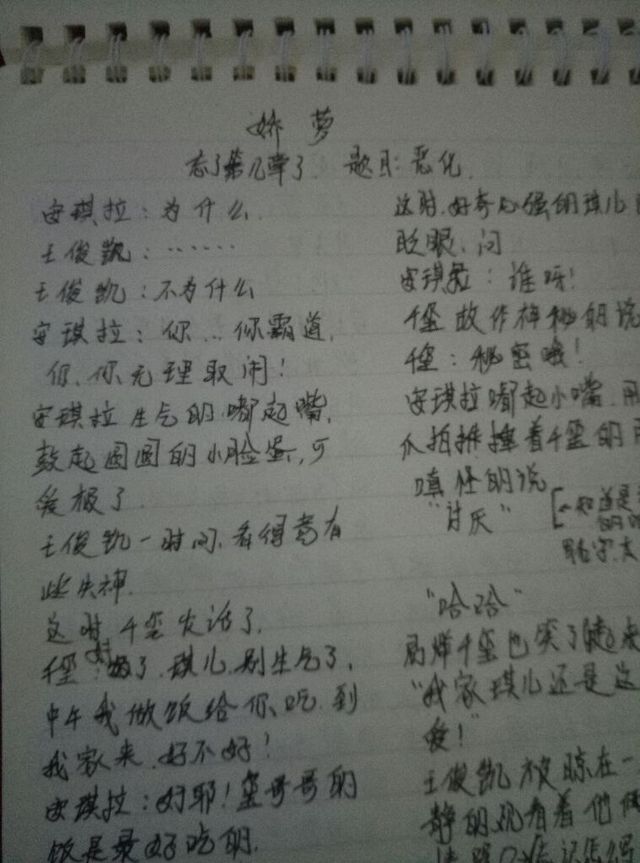 娇梦
忘了第几章了 题目:恶化
安琪拉:为什么
王俊凯:……
王俊凯:不为什么
安琪拉:你…你霸道,
你、你无理取闹!
安琪拉生气的嘟起嘴,
鼓起圆圆的小脸蛋,可
爱极了
王俊凯一时间,看得都有
些失神.
这时,千玺发话了,
千玺:好了,琪儿,别生气了,
中午我做饭给你吃,到
我家来,好不好!
安琪拉:好耶!玺哥哥的
饭是最好吃的.
这时,好奇心强的琪儿
眨眼,问
安琪拉:谁呀!
千玺故作神秘的说
千玺:秘密哦!
安琪拉嘟起小嘴,用
爪拍捶着千玺的
嗔怪的说
“讨厌”
“哈哈”
千玺也笑了起来
“我家琪儿还是这
爱!”
王俊凯被晾在一
静的观看着他